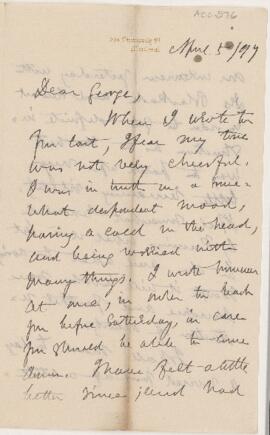 ACC 576
April 5/97
Dear George,
When I wrote to
you last, I fear my tone
was not very cheerful.
I was in truth in a some-
what despondent mood,
having a cold in the head,
and being worried with
many things. I wrote however
at once, in order to reach
you before Saturday, in case
you should be able to come
down. I have felt a little
better since, and had